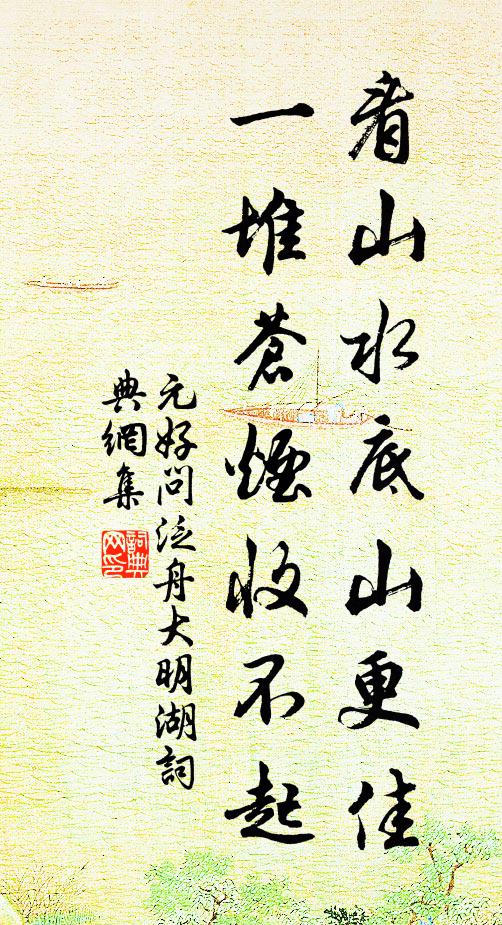 看山水底山更佳
一堆蒼煙收不起
元好问泛舟大明湖詞
典網集
詞典网印